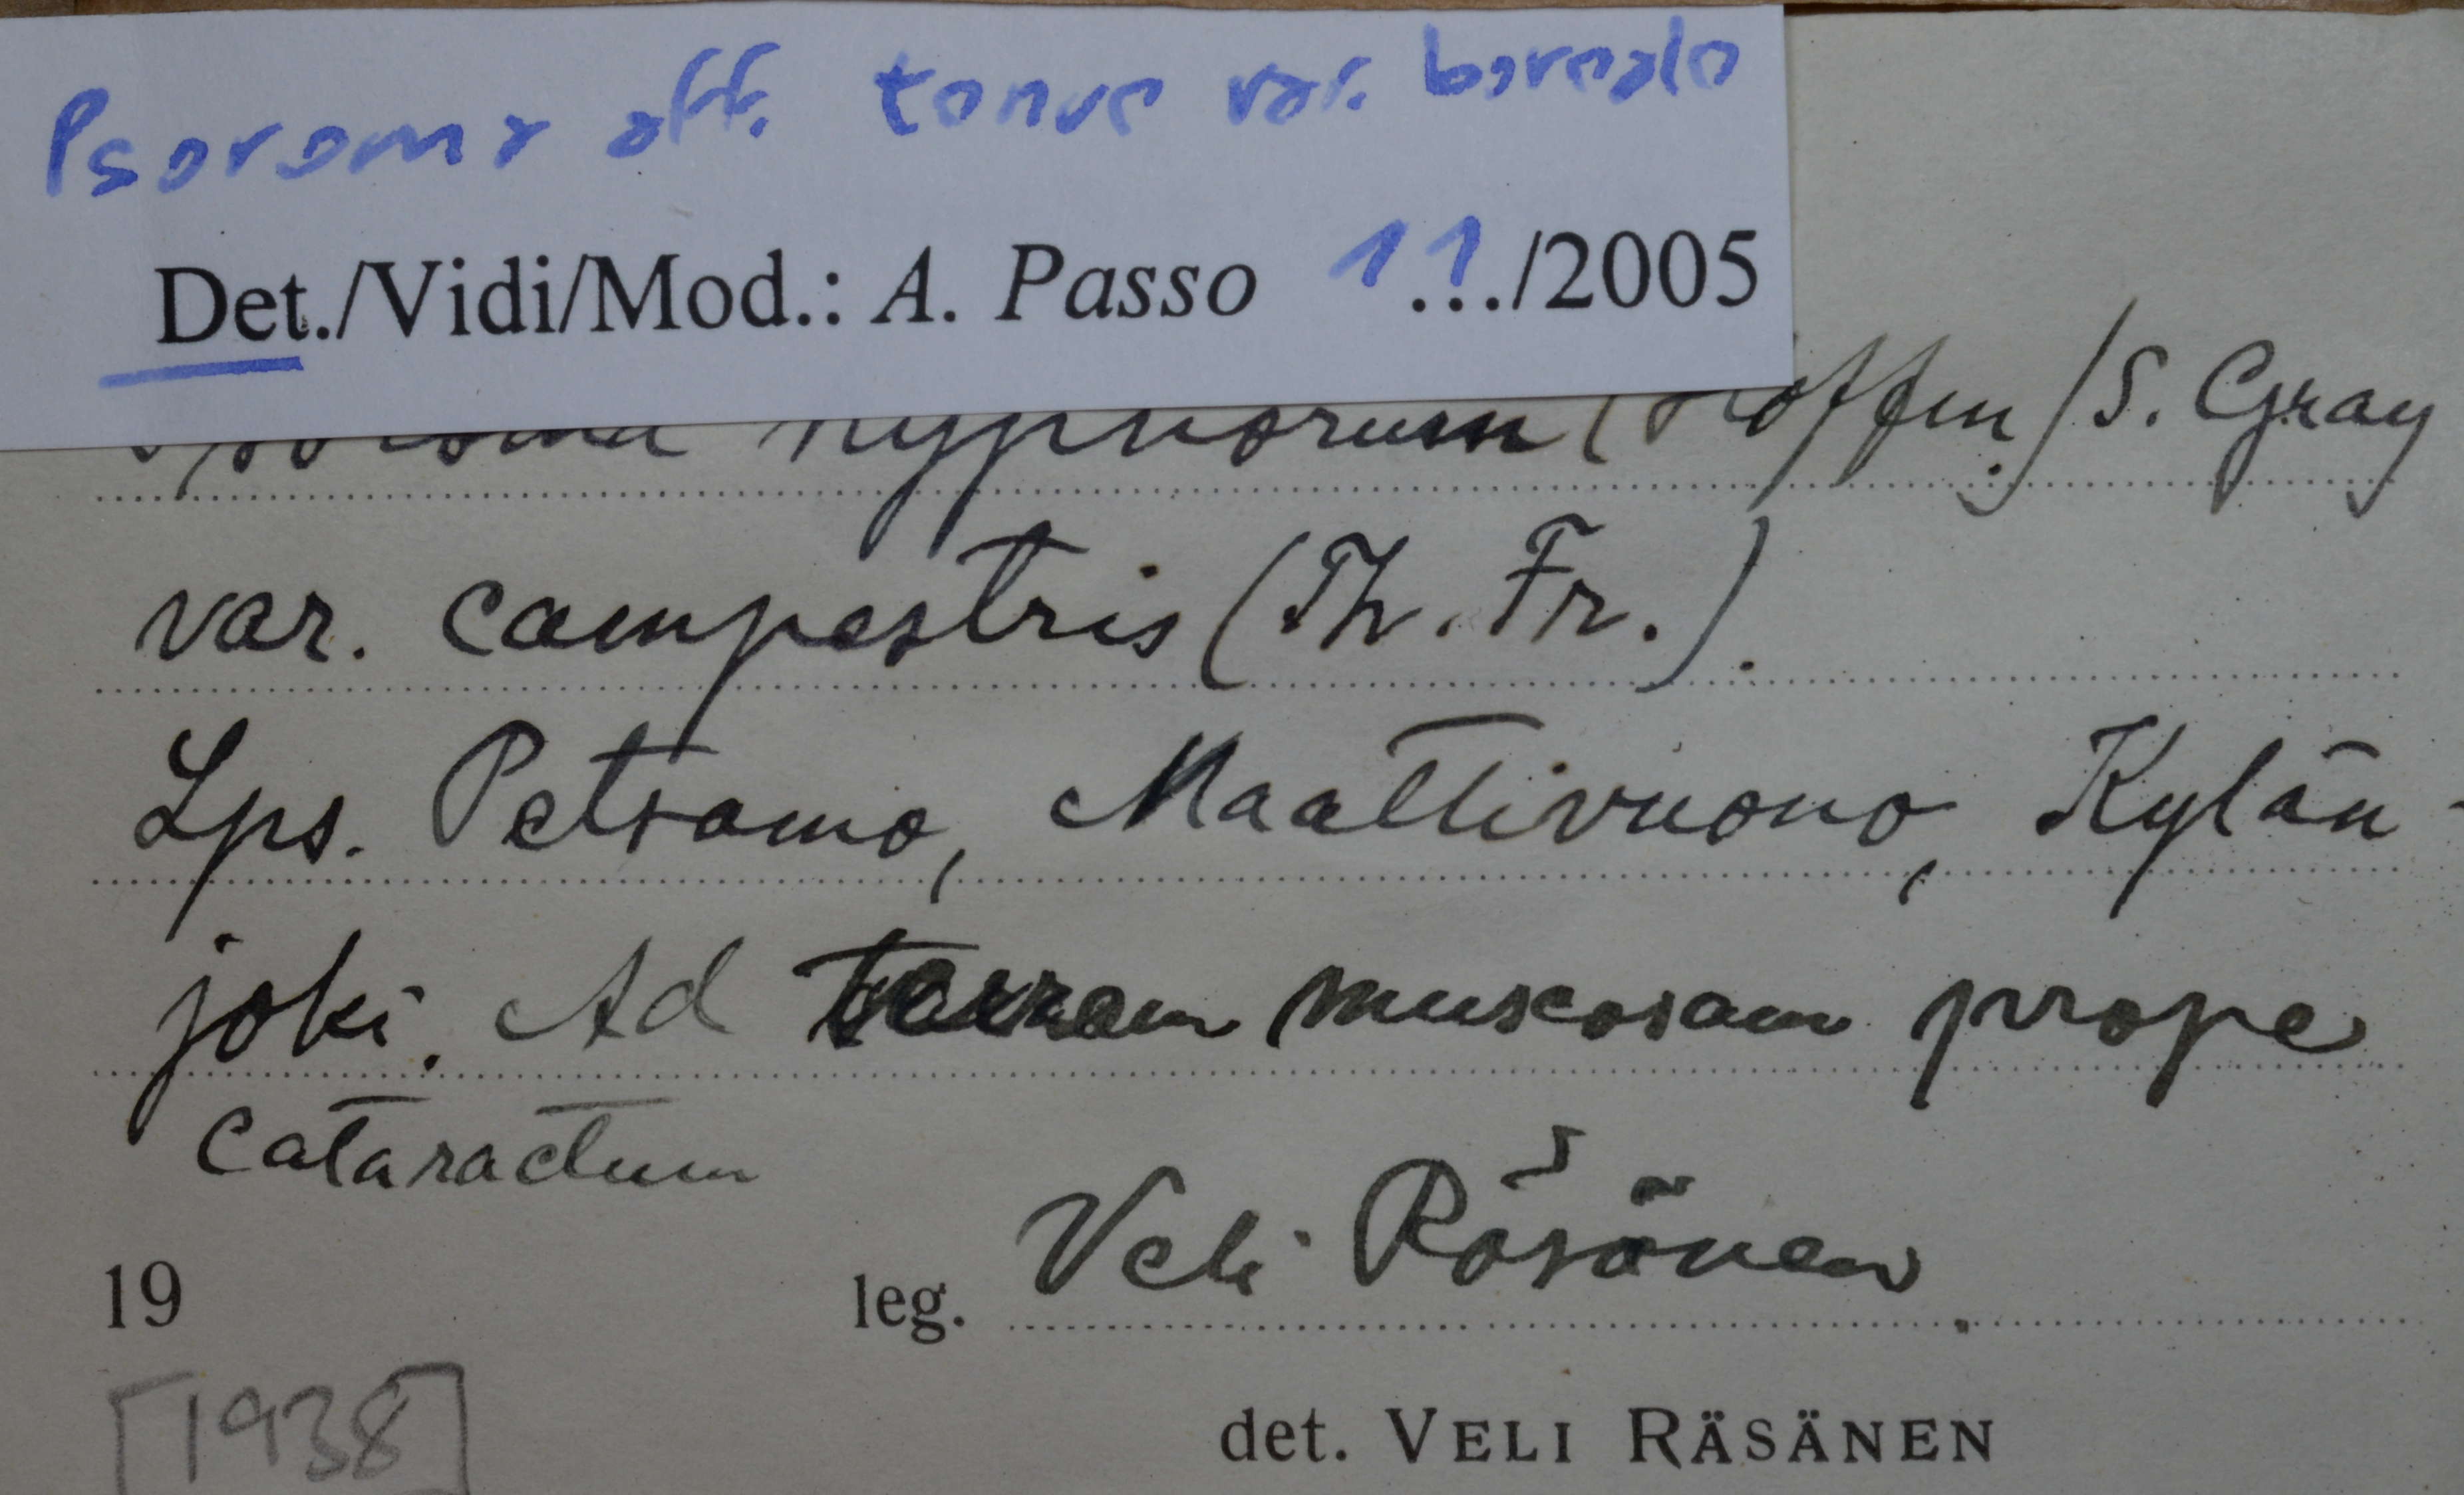 Psoroma aff. tenue var. boreale
Det./Vidi/Mod.: A. Passo 11.../2005
Psoroma hypnorum (Hoffm.) S. Gray
var. campestris (Th. Fr.).
Lps. Petsamo, Maattivuono, Kylän-
joki. Ad terram muscosam prope
cataractum
19 leg. Veli Räsänen
[1938]
det. VELI RÄSÄNEN